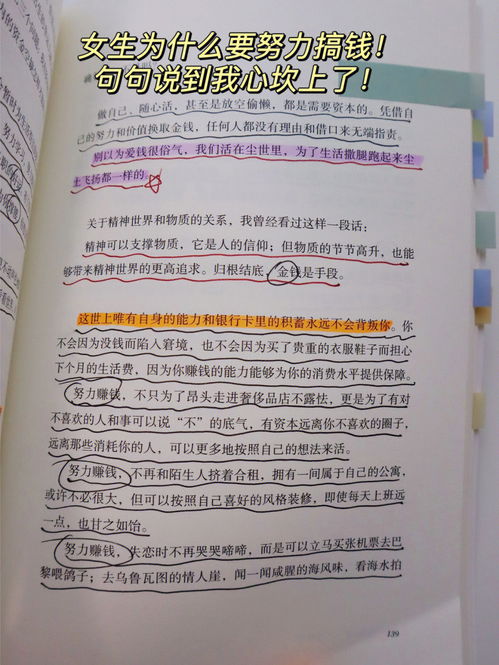 女生为什么要努力搞钱！
句句说到我心坎上了！
做自己、随心活，甚至是放空偷懒，都是需要资本的。凭借自
己的努力和价值换取金钱，任何人都没有理由和借口来无端指责。
别以为爱钱很俗气，我们活在尘世里，为了生活撒腿跑起来尘
土飞扬都一样的。
关于精神世界和物质的关系，我曾经看过这样一段话：
精神可以支撑物质，它是人的信仰；但物质的节节高升，也能
够带来精神世界的更高追求。归根结底，金钱是手段。
这世上唯有自身的能力和银行卡里的积蓄永远不会背叛你。你
不会因为没钱而陷入窘境，也不会因为买了贵重的衣服鞋子而担心
下个月的生活费，因为你赚钱的能力能够为你的消费水平提供保障。
努力赚钱，不只为了昂头走进奢侈品店不露怯，更是为了有对
不喜欢的人和事可以说“不”的底气，有资本远离你不喜欢的圈子，
远离那些消耗你的人，可以更多地按照自己的想法来活。
努力赚钱，不再和陌生人挤着合租，拥有一间属于自己的公寓，
或许不必很大，但可以按照自己喜好的风格装修，即使每天上班远
一点，也甘之如饴。
努力赚钱，失恋时不再哭哭啼啼，而是可以立马买张机票去巴
黎喂鸽子；去乌鲁瓦图的情人崖，闻一闻咸腥的海风味，看海水拍
139